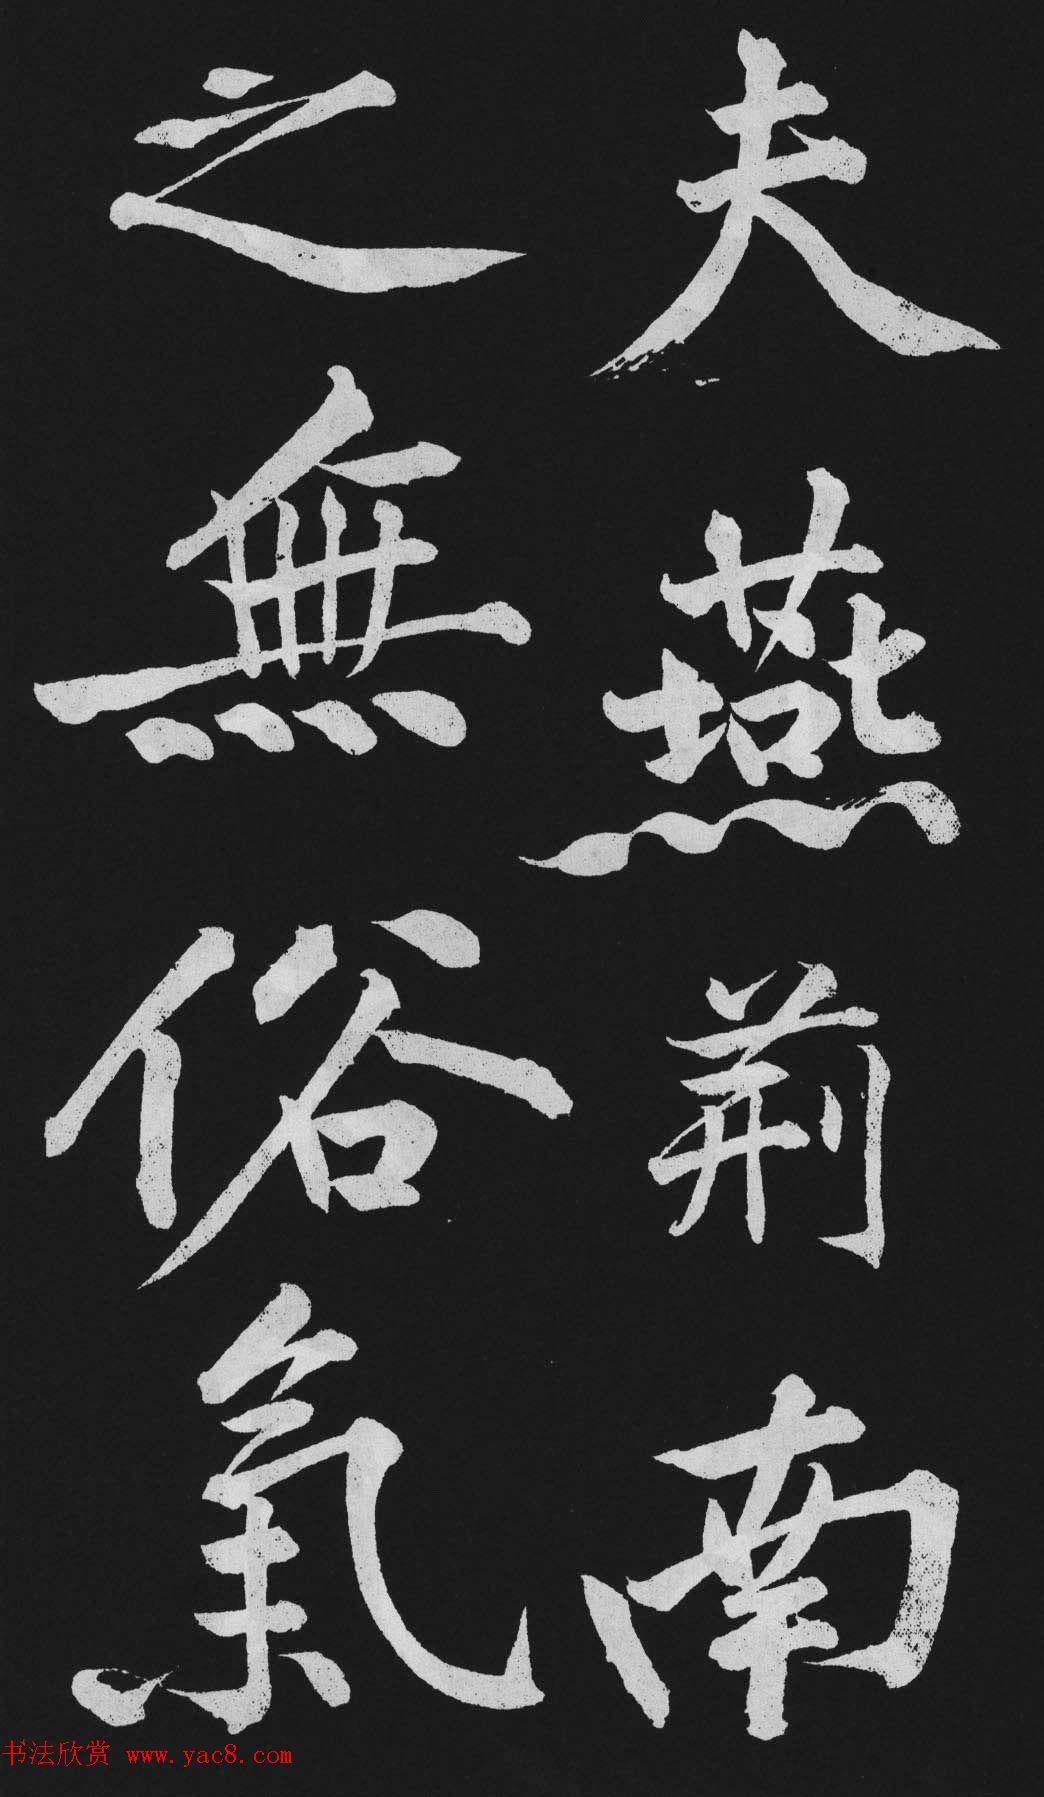 夫燕荊南
之無俗氣
书法欣赏 www.yac8.com